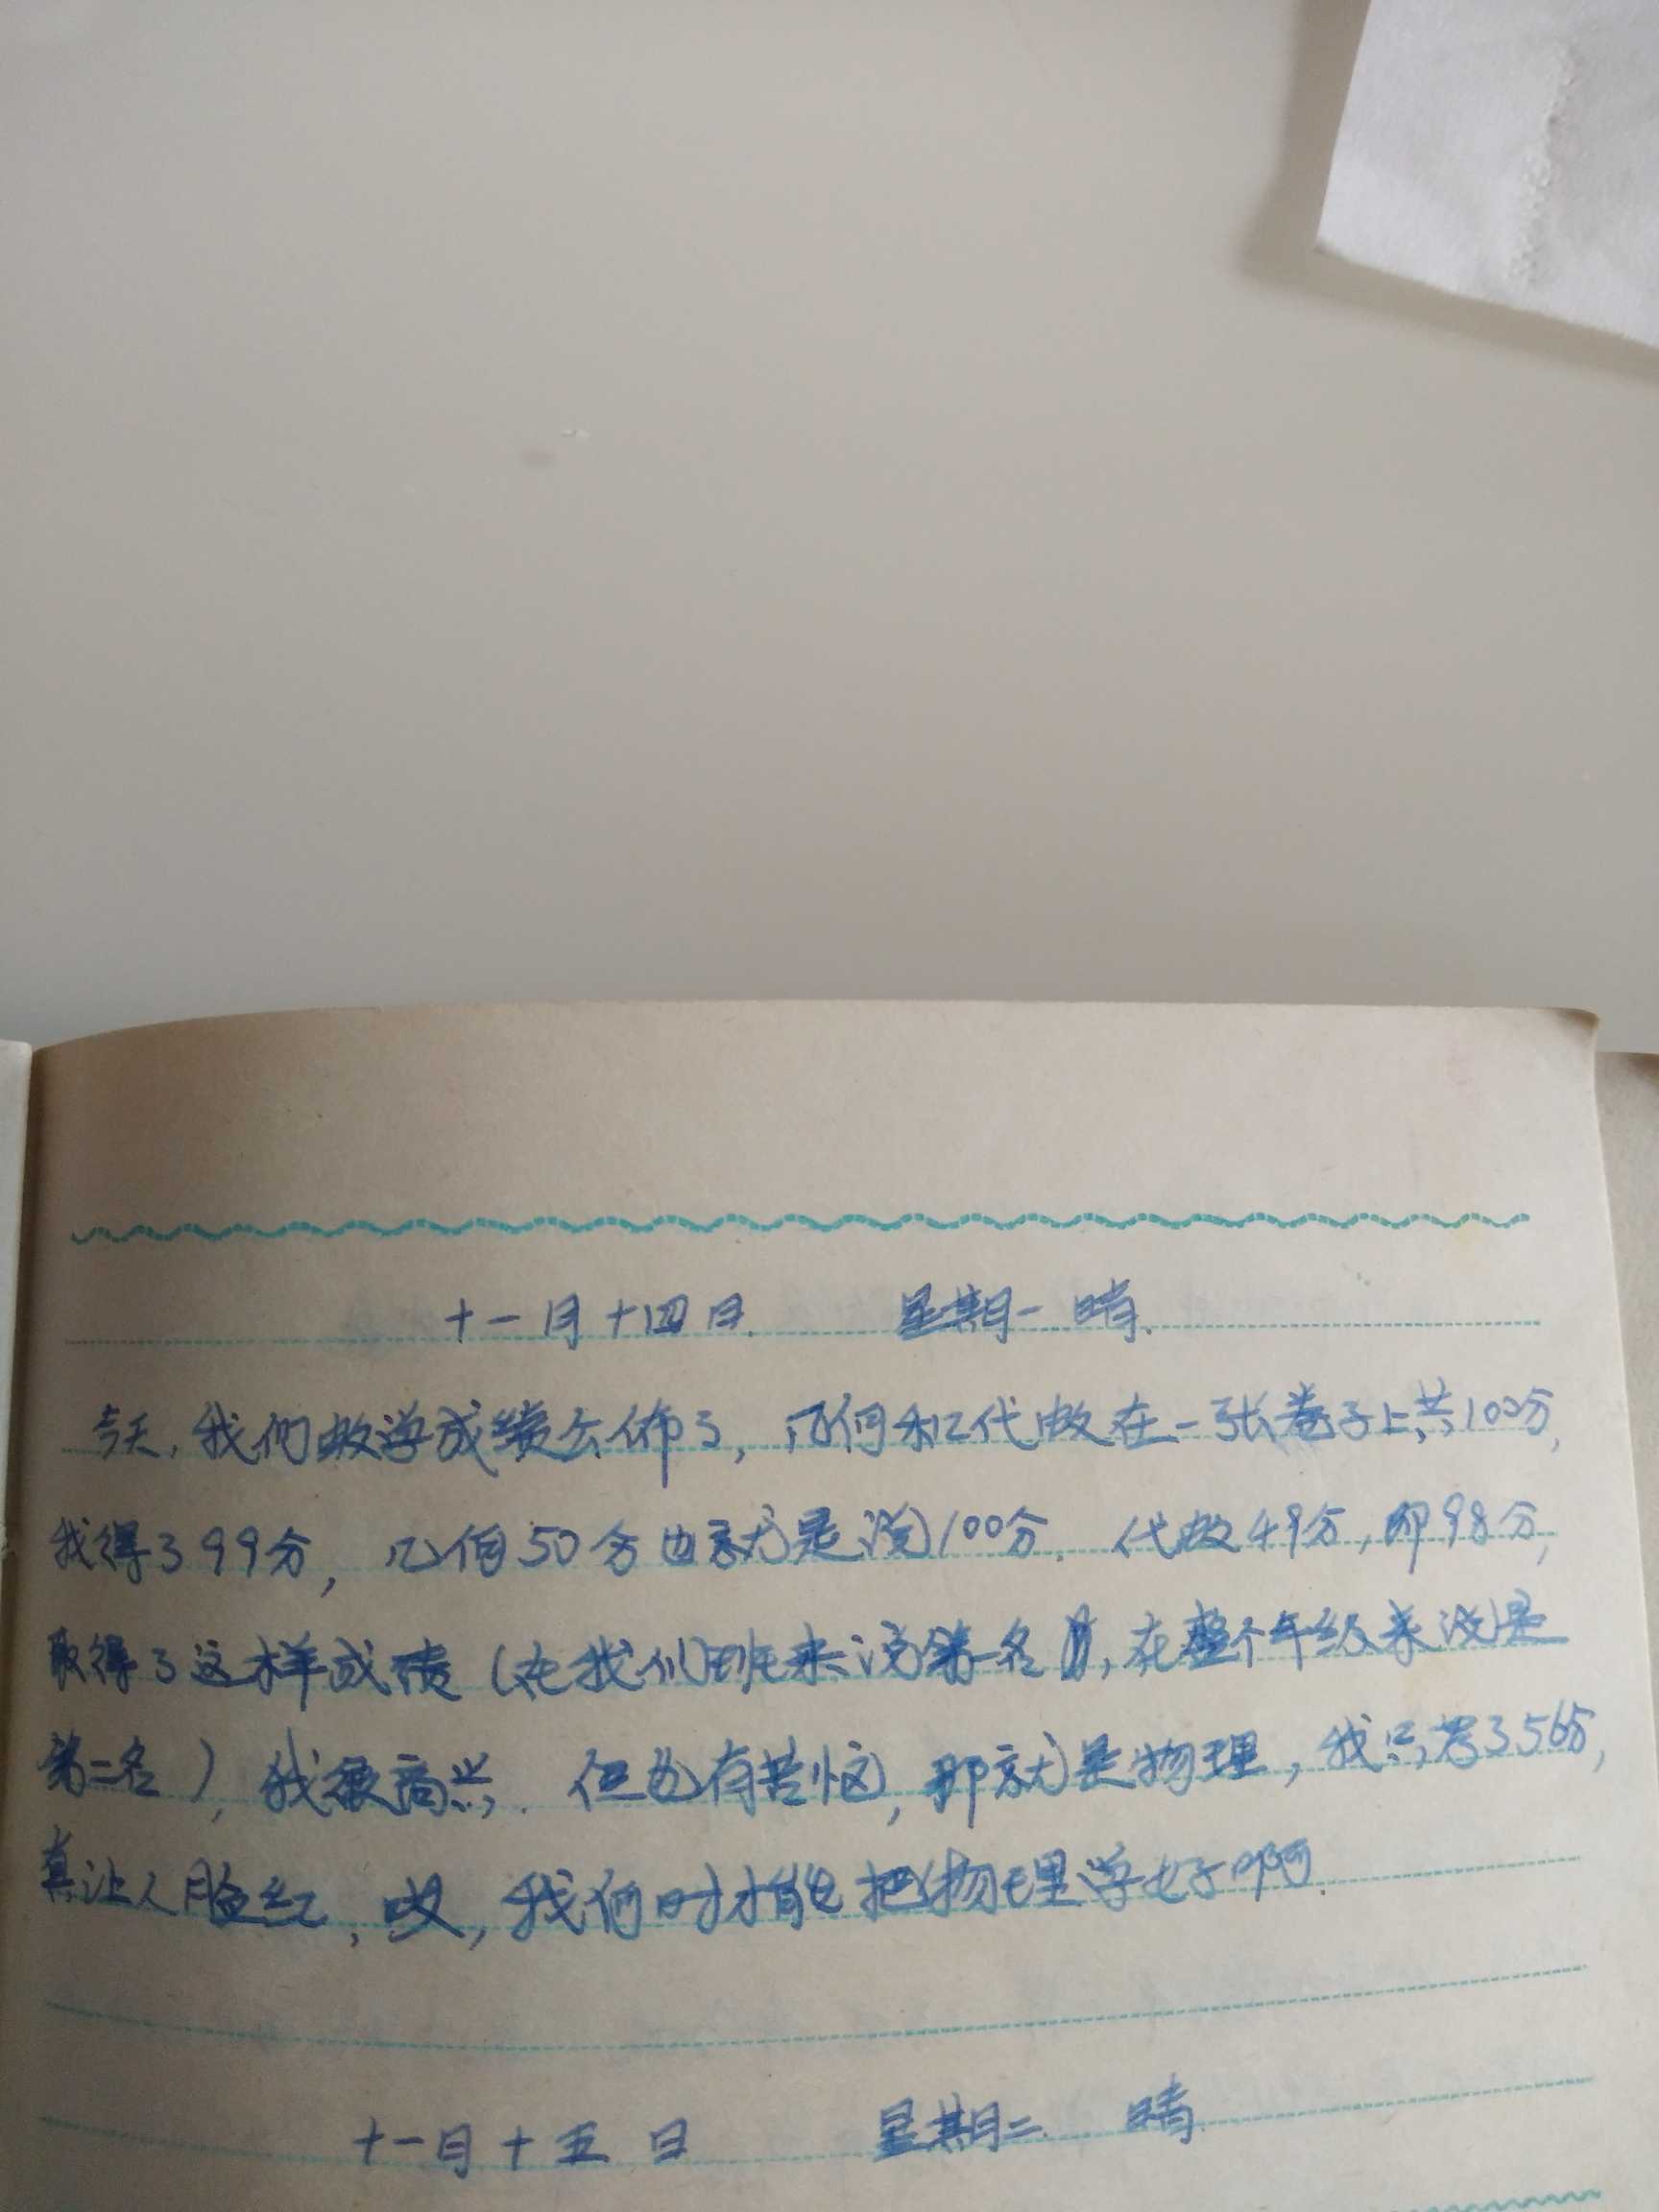 十一月十四日. 星期一 晴.
今天,我们数学成绩公佈了,几何和代数在一张卷子上共100分,
我得了99分,几何50分也就是说100分.代数49分,即98分,
取得了这样成绩(在我们班来说第一名,在整个年级来说是
第二名),我很高兴.但也有苦恼,那就是物理,我只考了56分,
真让人脸红,哎,我何时才能把物理学好啊.
十一月十五日 星期二. 晴